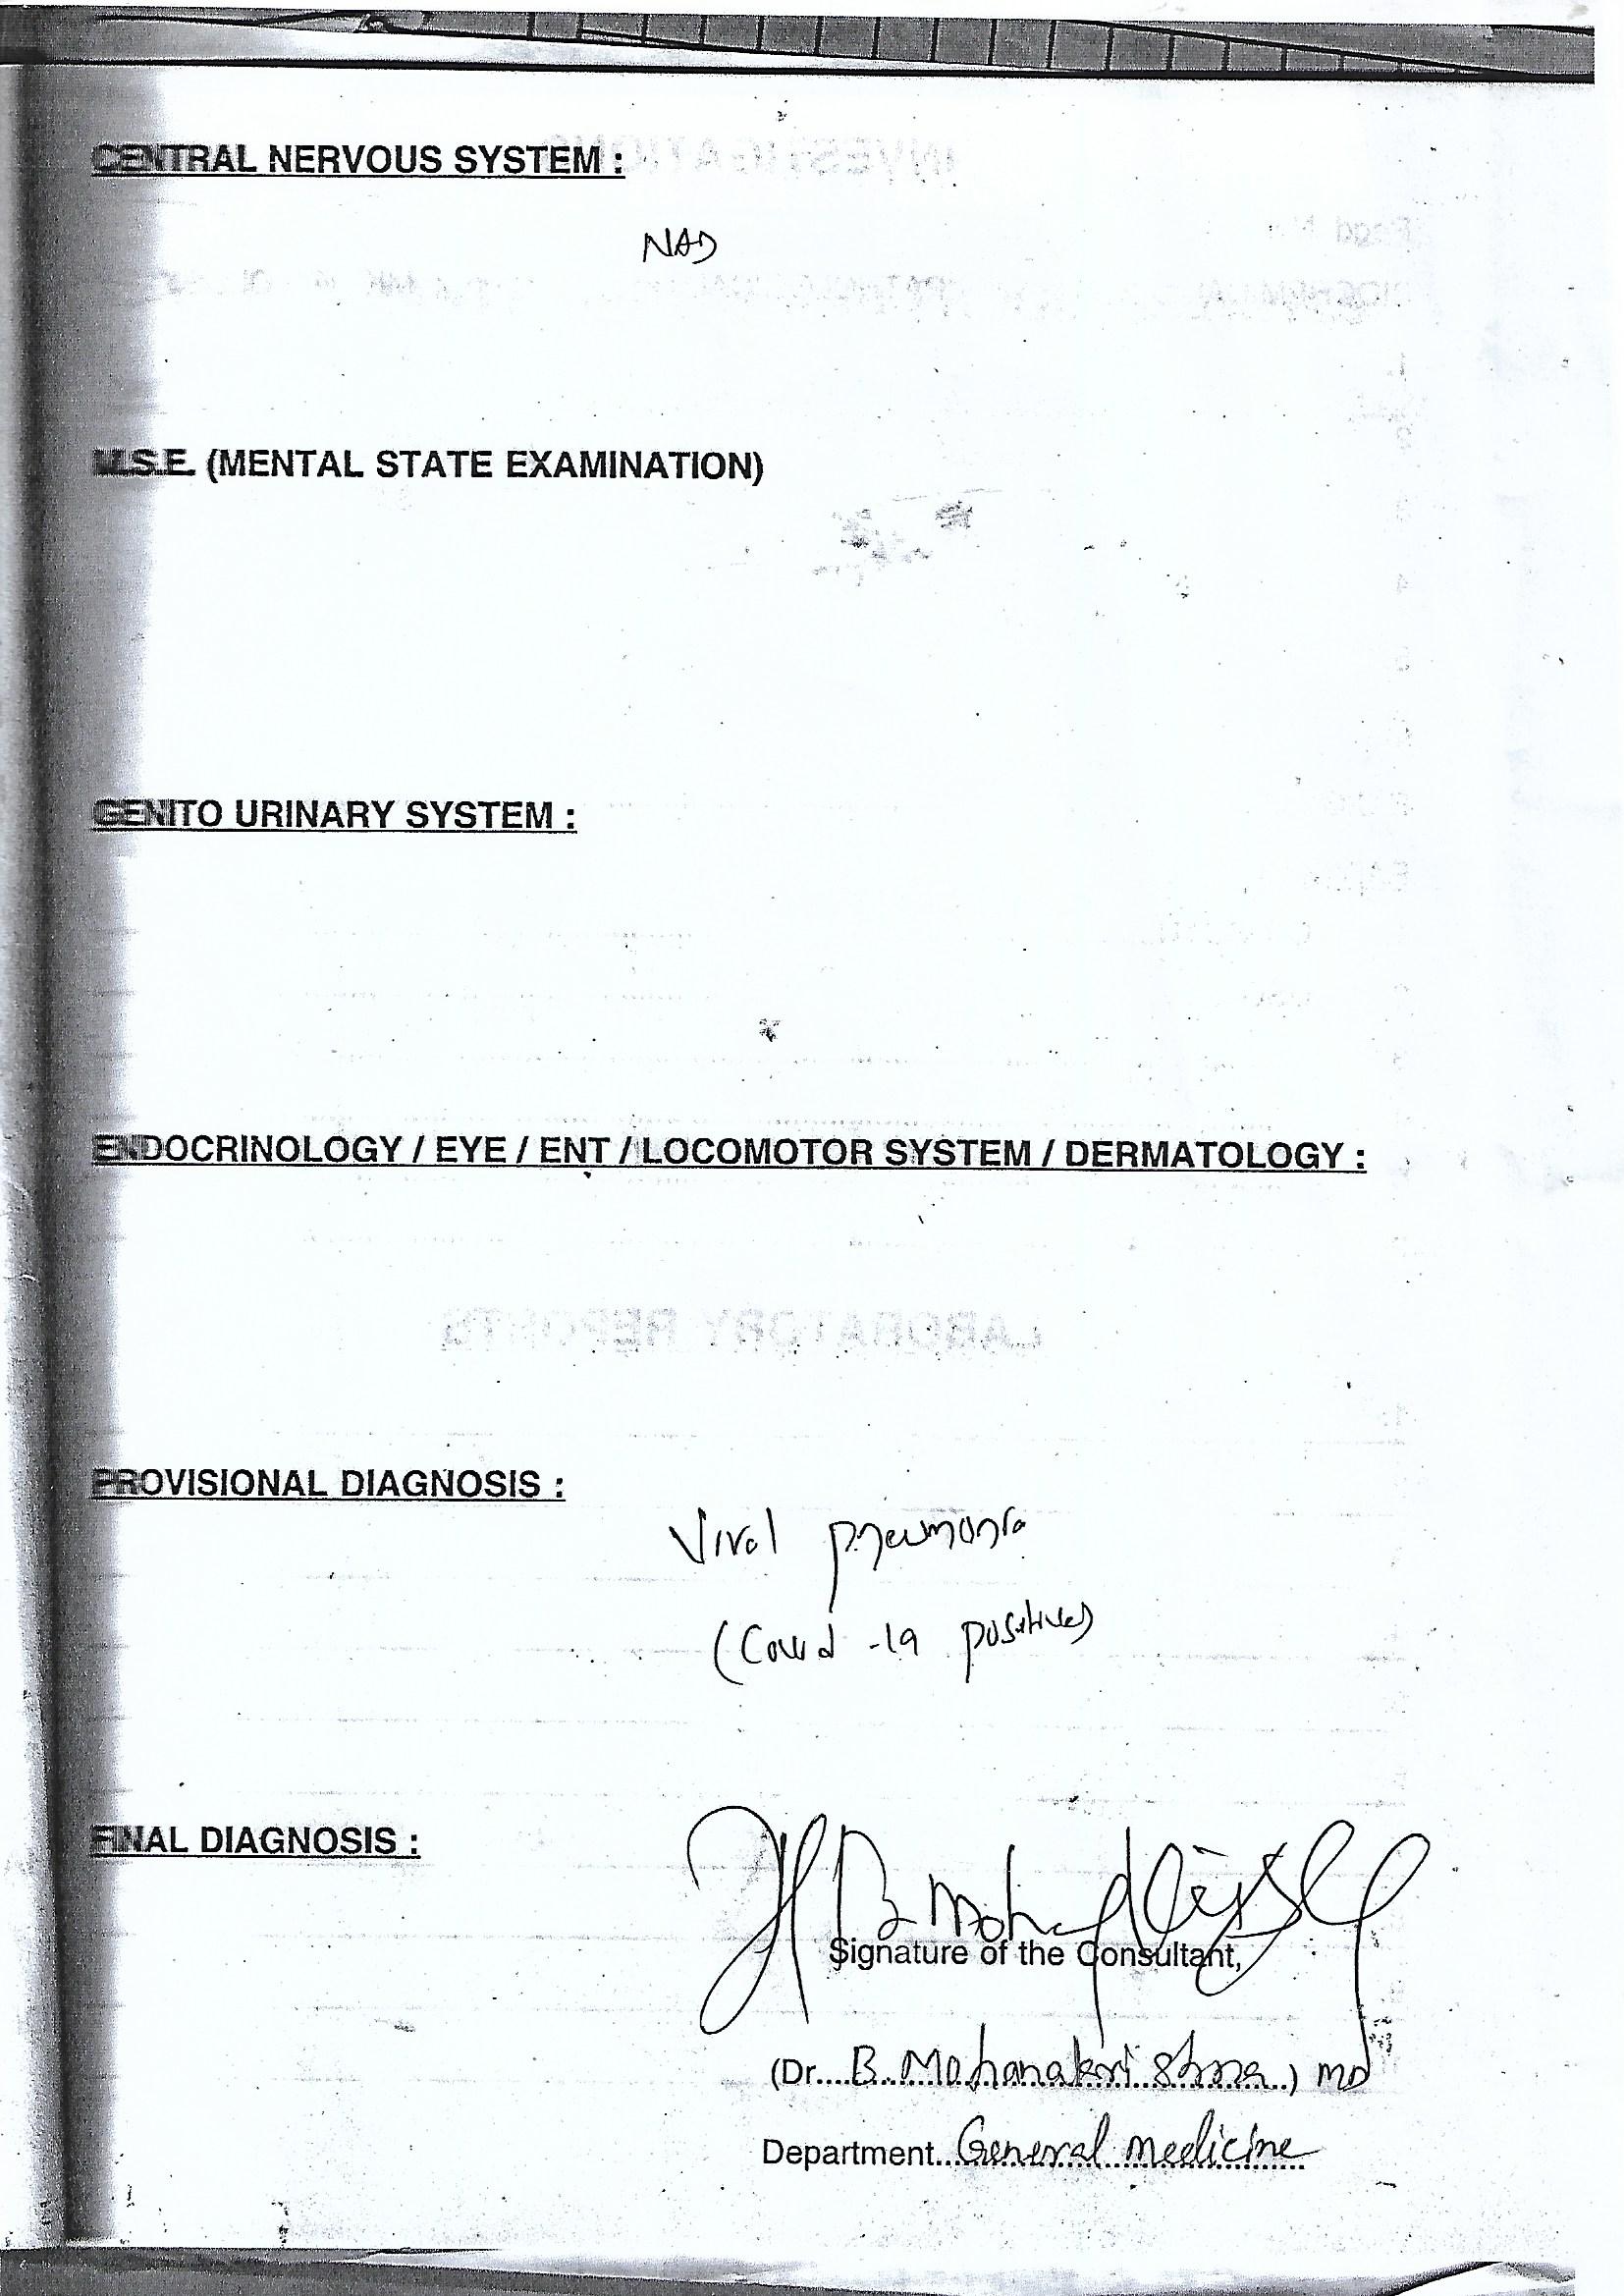 CENTRAL NERVOUS SYSTEM :
NAD
M.S.E. (MENTAL STATE EXAMINATION)
GENITO URINARY SYSTEM :
ENDOCRINOLOGY / EYE / ENT / LOCOMOTOR SYSTEM / DERMATOLOGY :
PROVISIONAL DIAGNOSIS :
Viral pneumonia
(Covid -19 positive)
FINAL DIAGNOSIS :
Signature of the Consultant,
(Dr....B. Mohanakrishna...) MD
Department...General medicine